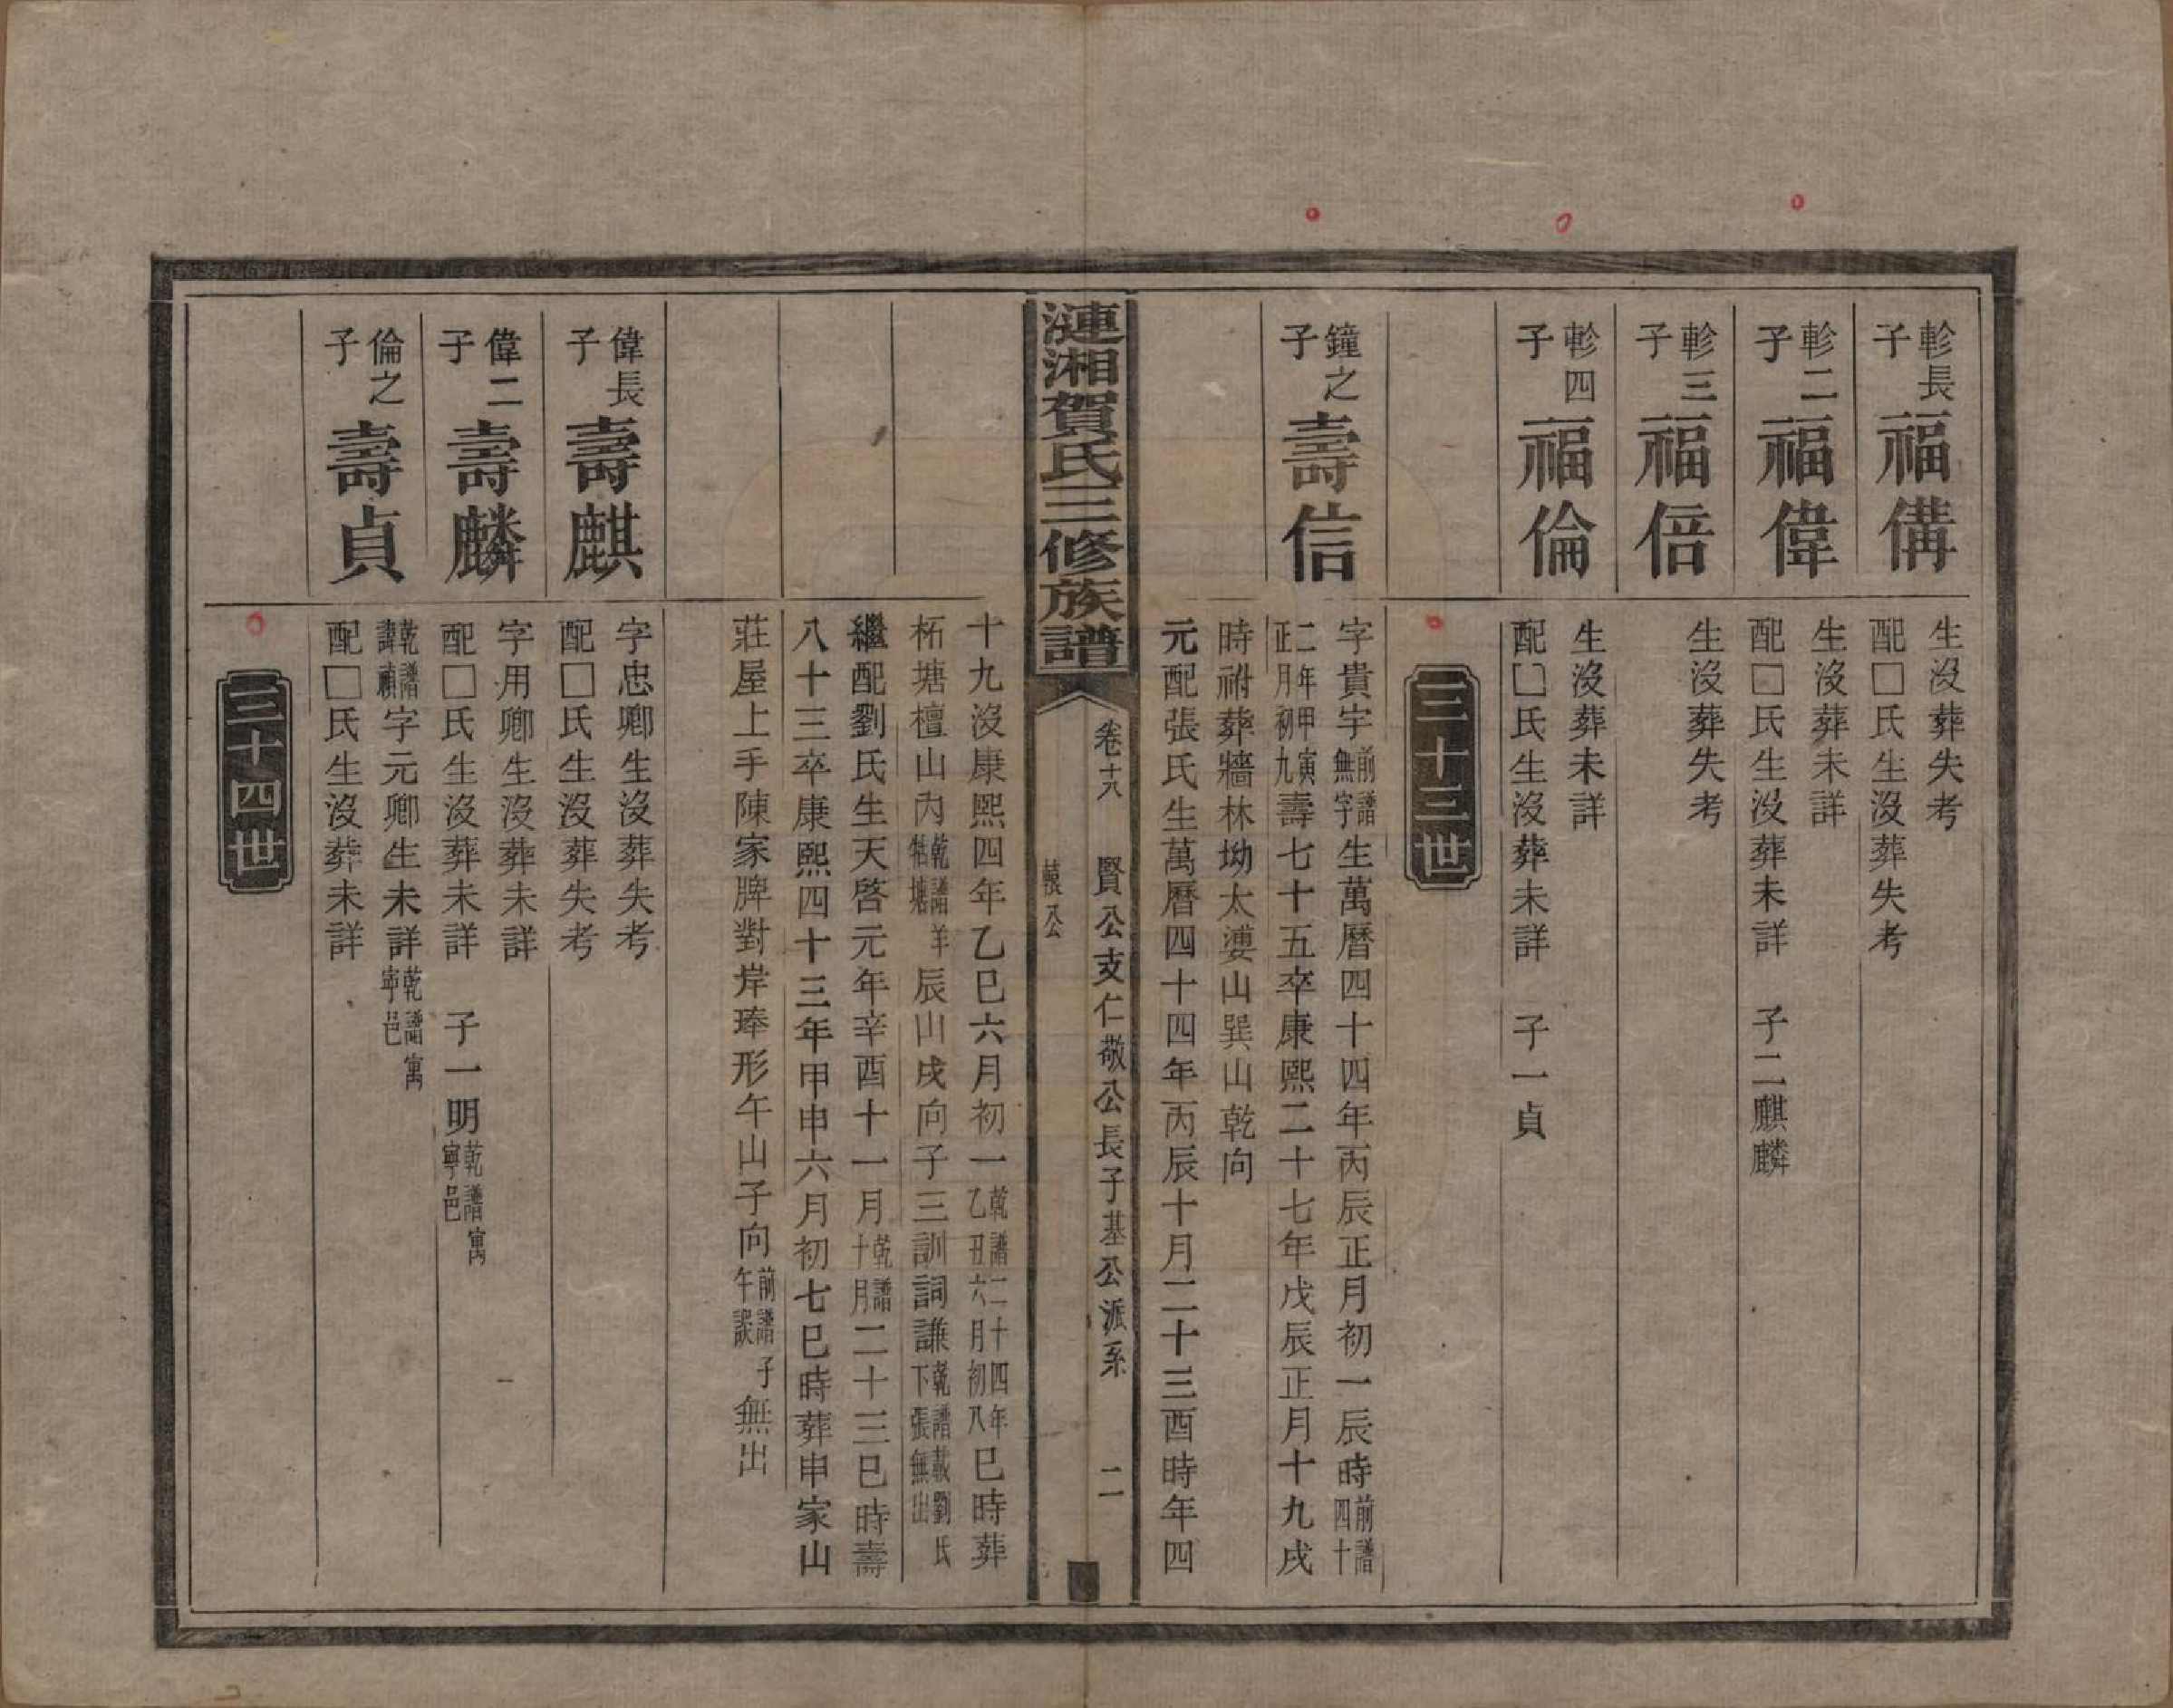 軫長子 福備
生沒葬失考
配□氏生沒葬失考
軫二子 福偉
生沒葬未詳
配□氏生沒葬未詳 子二麒麟
軫三子 福倍
生沒葬失考
軫四子 福倫
生沒葬未詳
配□氏生沒葬未詳 子一貞
三十三世
鐘之子 壽信
字貴宇前譜無字生萬曆四十四年丙辰正月初一辰時前譜四十
二年甲寅正月初九壽七十五卒康熙二十七年戊辰正月十九戌
時祔葬牆林坳太婆山巽山乾向
元配張氏生萬曆四十四年丙辰十月二十三酉時年四
漣湘賀氏三修族譜
卷十八 賢公支仁敬公長子基公派系 二
公
十九沒康熙四年乙巳六月初一乾譜二十四年乙丑六月初八巳時葬
柘塘檀山內乾譜羊牯塘辰山戌向子三訓詞謙乾譜載劉氏下張無出
繼配劉氏生天啓元年辛酉十一月乾譜十月二十三巳時壽
八十三卒康熙四十三年甲申六月初七巳時葬申家山
莊屋上手陳家牌對岸琫形午山子向前譜子午誤無出
偉長子 壽麒
字忠卿生沒葬失考
配□氏生沒葬失考
偉二子 壽麟
字用卿生沒葬未詳
配□氏生沒葬未詳 子一明乾譜寓寧邑
倫之子 壽貞
乾譜諱禎字元卿生未詳乾譜寓寧邑
配□氏生沒葬未詳
三十四世